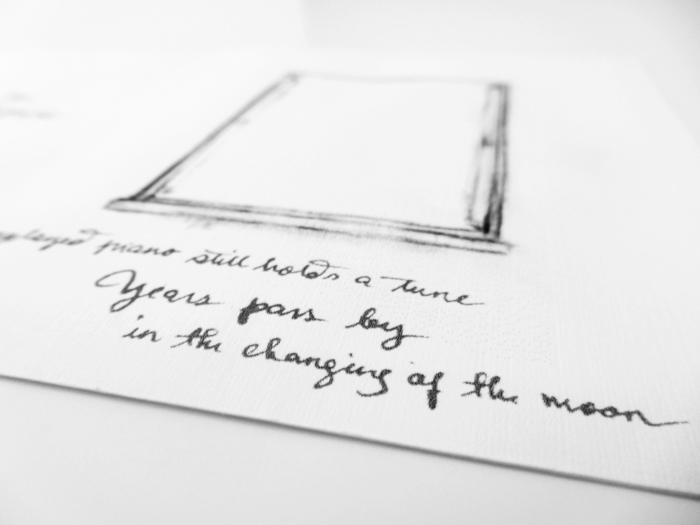 piano still holds a tune
Years pass by
in the changing of the moon